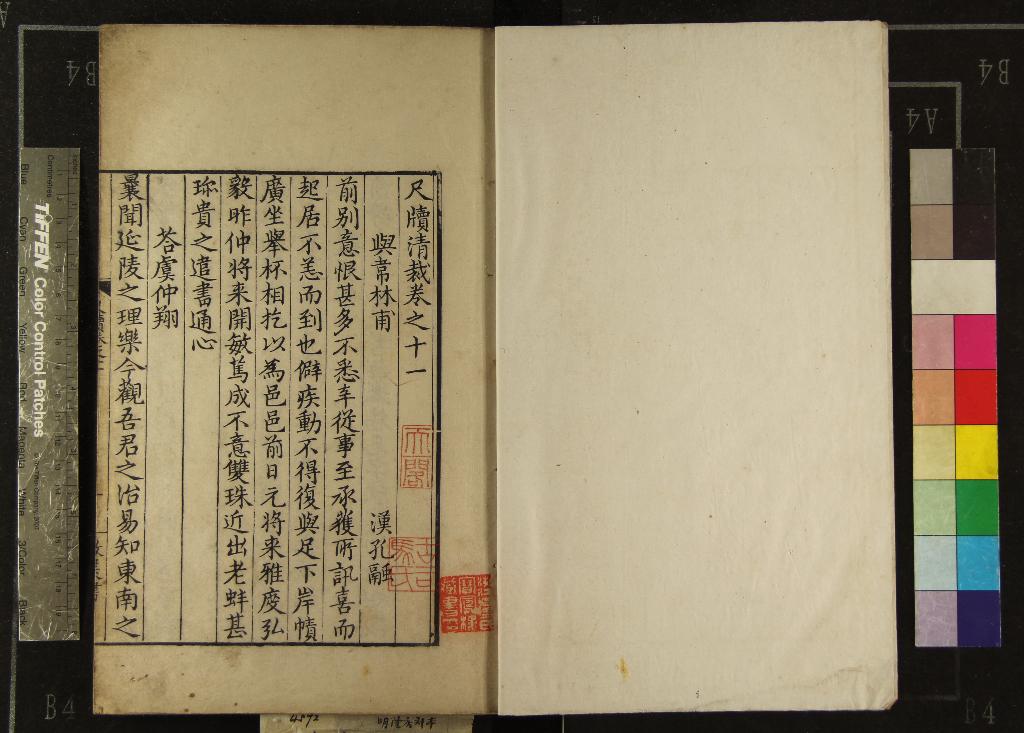 尺牘清裁卷之十一
與韋林甫
漢孔融
前别意恨甚多不悉率從事至承獲所訊喜而
起居不恙而到也僻疾動不得復與足下岸幘
廣坐舉杯相扵以為邑邑前日元將来雅度弘
毅昨仲将来開敏篤成不意雙珠近出老蚌甚
珎貴之遣書通心
荅虞仲翔
曩聞延陵之理樂今觀吾君之治易知東南之
TIFFEN Color Control Patches
Centimetres
Blue
Cyan
Green
Yellow
Red
Magenta
White
3/Color
Black
B4
B4
A4
B4
B4
4892